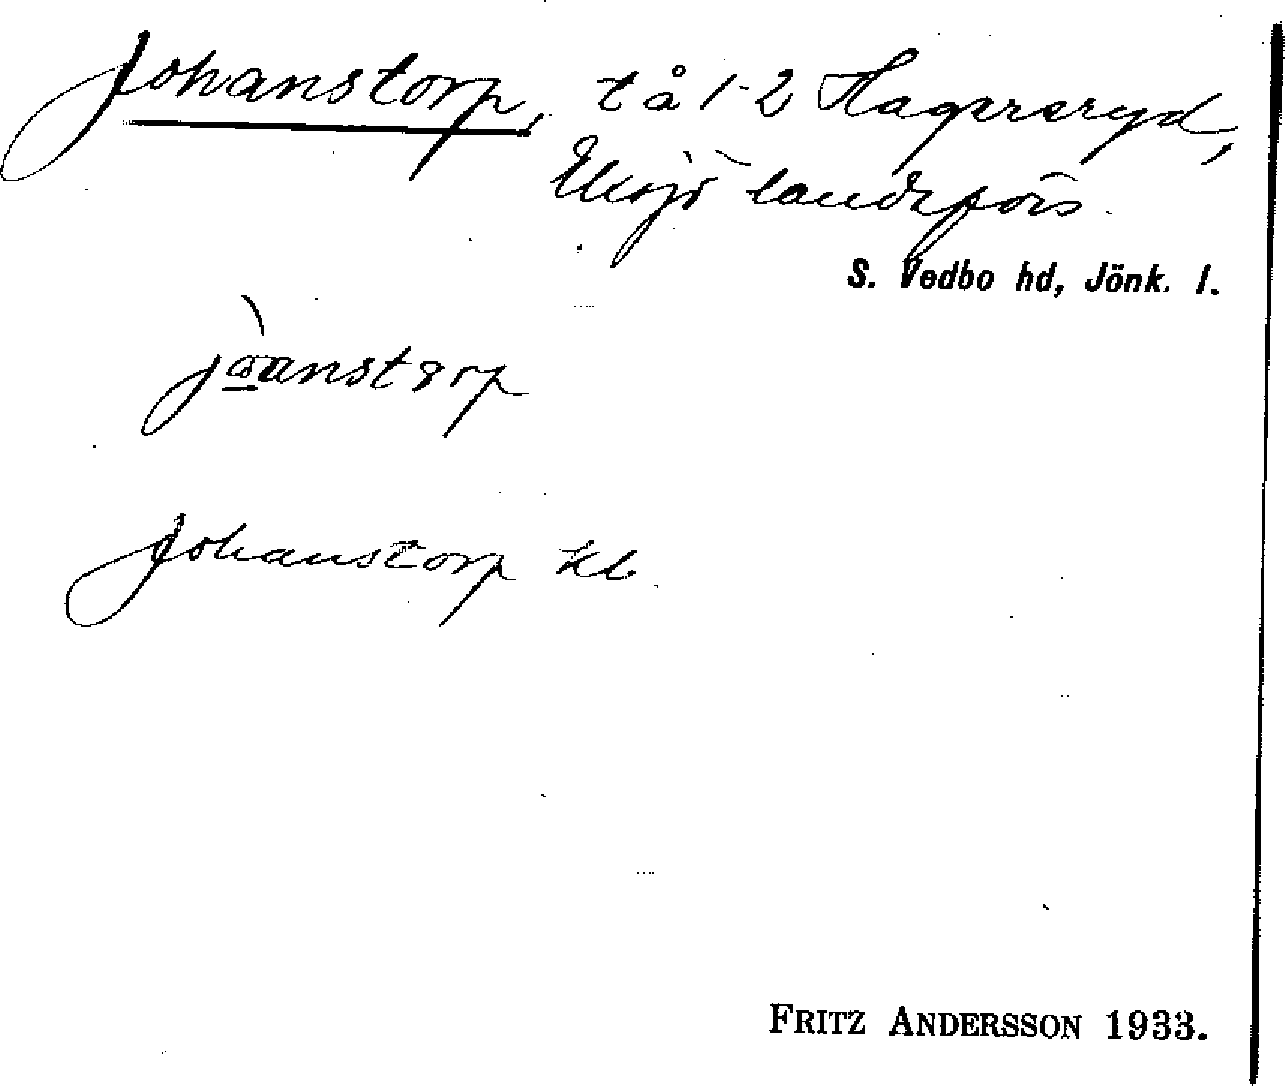 Johanstorp, t å 1-2 Hagersryd,
Eksjö landsförs.
S. Vedbo hd, Jönk. l.
Johanstorp kb
FRITZ ANDERSSON 1933.